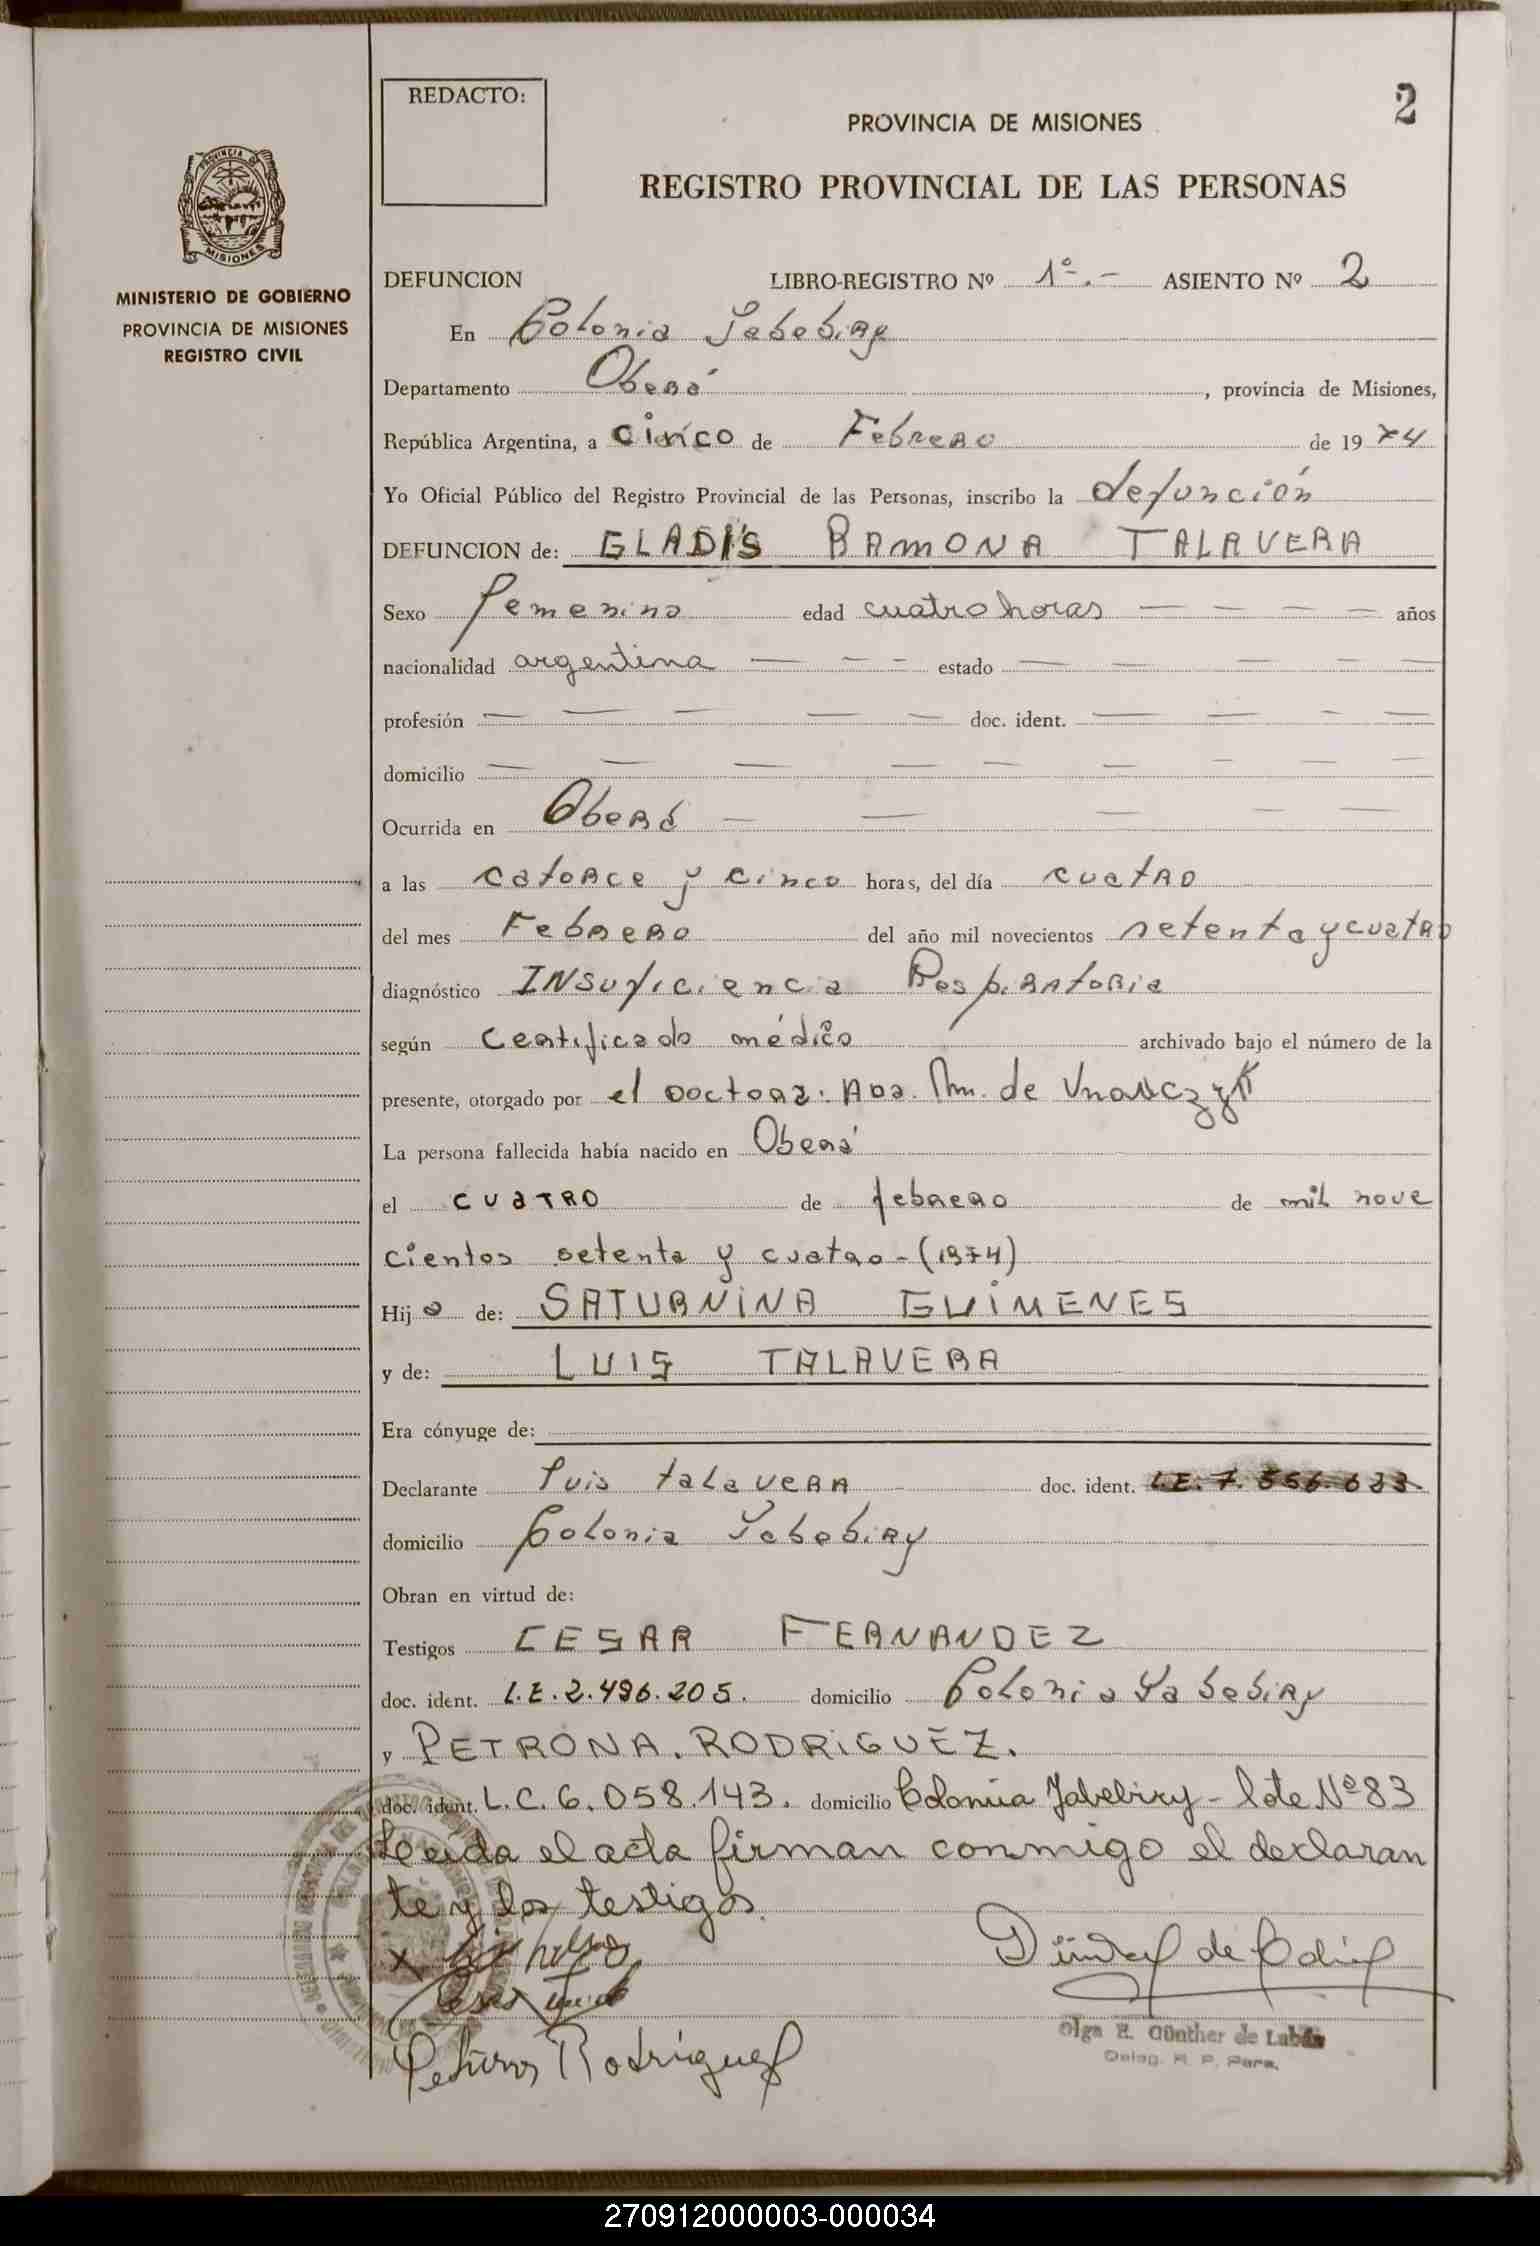 REDACTO:
2
PROVINCIA DE MISIONES
REGISTRO PROVINCIAL DE LAS PERSONAS
PROVINCIA DE
MISIONES
MINISTERIO DE GOBIERNO
PROVINCIA DE MISIONES
REGISTRO CIVIL
DEFUNCION LIBRO-REGISTRO Nº 1º.- ASIENTO Nº 2
En Colonia Yabebiry
Departamento Oberá, provincia de Misiones,
República Argentina, a cinco de Febrero de 1974
Yo Oficial Público del Registro Provincial de las Personas, inscribo la defunción
DEFUNCION de: GLADIS RAMONA TALAVERA
Sexo femenino edad cuatro horas — — — — años
nacionalidad argentina — — — estado — — — — —
profesión — — — — — doc. ident. — — — —
domicilio — — — — — — — — —
Ocurrida en Oberá — — — — —
a las catorce y cinco horas, del día cuatro
del mes Febrero del año mil novecientos setenta y cuatro
diagnóstico INsuficiencia Respiratoria
según Certificado médico archivado bajo el número de la
presente, otorgado por el Doctor: de
La persona fallecida había nacido en Oberá
el cuatro de febrero de mil nove
cientos setenta y cuatro-(1974)
Hij a de: SATURNINA GUIMENES
y de: LUIS TALAVERA
Era cónyuge de:
Declarante Luis Talavera doc. ident. L.E. 7.
domicilio Colonia Yabebiry
Obran en virtud de:
Testigos CESAR FERNANDEZ
doc. ident. L.E. 2.496.205. domicilio Colonia Yabebiry
y PETRONA. RODRIGUEZ.
doc. ident. L.C. 6.058.143. domicilio Colonia Yabebiry - lote Nº 83
Leida el acta firman conmigo el declaran
te y los testigos.
X
Petrona Rodriguez
Olga E. Günther de Labán
Deleg. R. P. Pers.
270912000003-000034